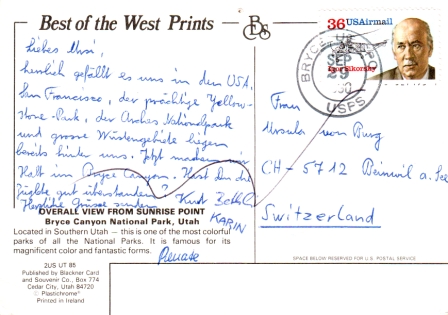 Best of the West Prints
BDS
36 USAirmail
Igor Sikorsky
BRYCE, UT
SEP
USFS
Liebes Ursi,
herrlich gefällt es uns in den USA.
San Francisco, der prächtige Yellow-
stone-Park, der Arches Nationalpark
und grosse Wüstengebiete liegen
bereits hinter uns. Jetzt machen wir
Halt im Bryce Canyon. Hast Du die
gut überstanden?
Herzliche Grüsse senden Kurt
KARIN
Renate
Frau
Ursula von Burg
CH-5712 Beinwil a. See
Switzerland
OVERALL VIEW FROM SUNRISE POINT
Bryce Canyon National Park, Utah
Located in Southern Utah — this is one of the most colorful
parks of all the National Parks. It is famous for its
magnificent color and fantastic forms.
2US UT 88
Published by Blackner Card
and Souvenir Co., Box 774
Cedar City, Utah 84720
© Plastichrome®
Printed in Ireland
SPACE BELOW RESERVED FOR U.S. POSTAL SERVICE